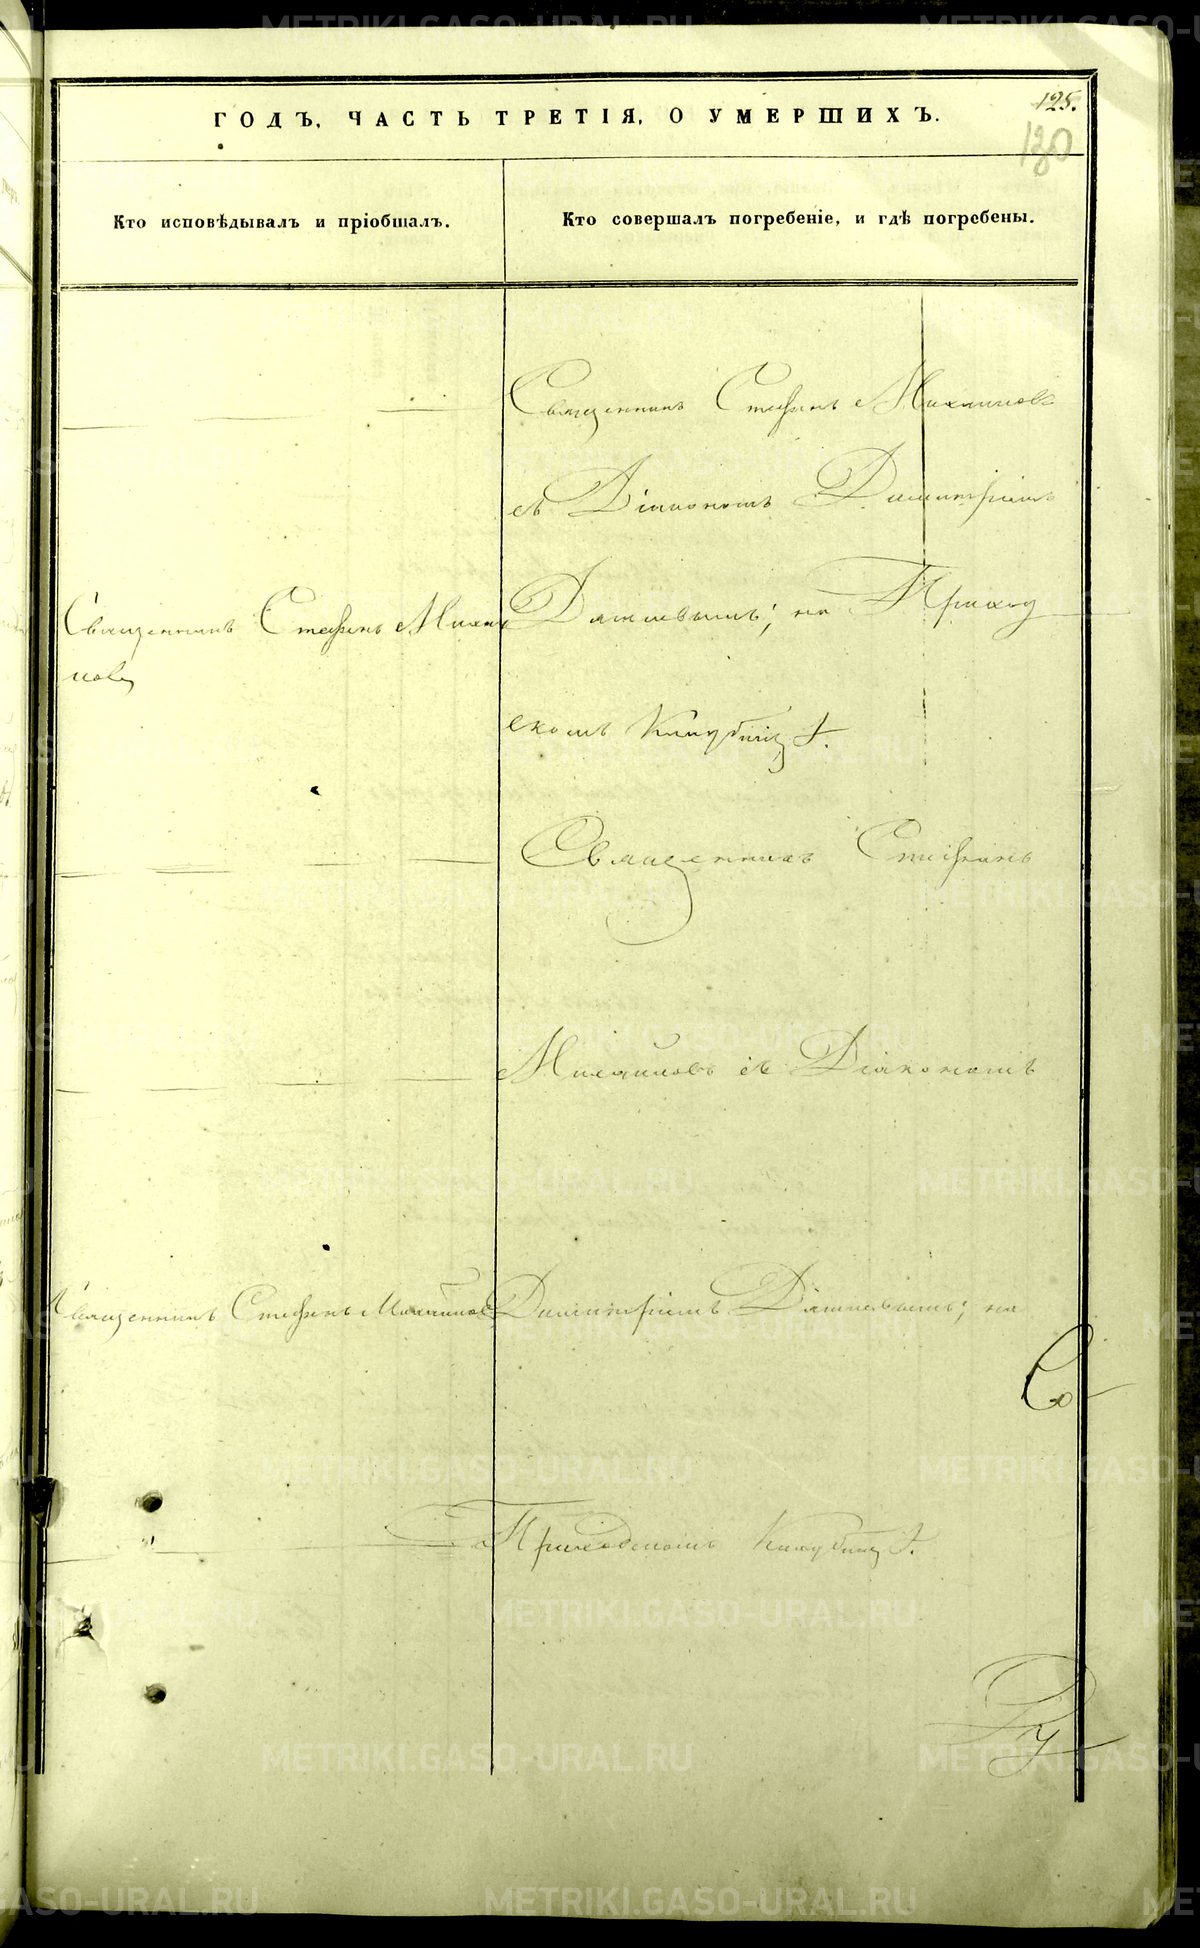 125.
130
ГОДЪ, ЧАСТЬ ТРЕТІЯ, О УМЕРШИХЪ.
Кто исповѣдывалъ и пріобщалъ.
Кто совершалъ погребеніе, и гдѣ погребены.
Священникъ Стефанъ Михайловъ
съ Діакономъ Димитріемъ
Священникъ Стефанъ Михай
ловъ
на Приход
скомъ Кладбищѣ.
Священникъ Стефанъ
Михайловъ съ Діакономъ
Священникъ Стефанъ Михайловъ
Димитріемъ на
Со
Приходскомъ Кладбищѣ.
Ру
METRIKI.GASO-URAL.RU